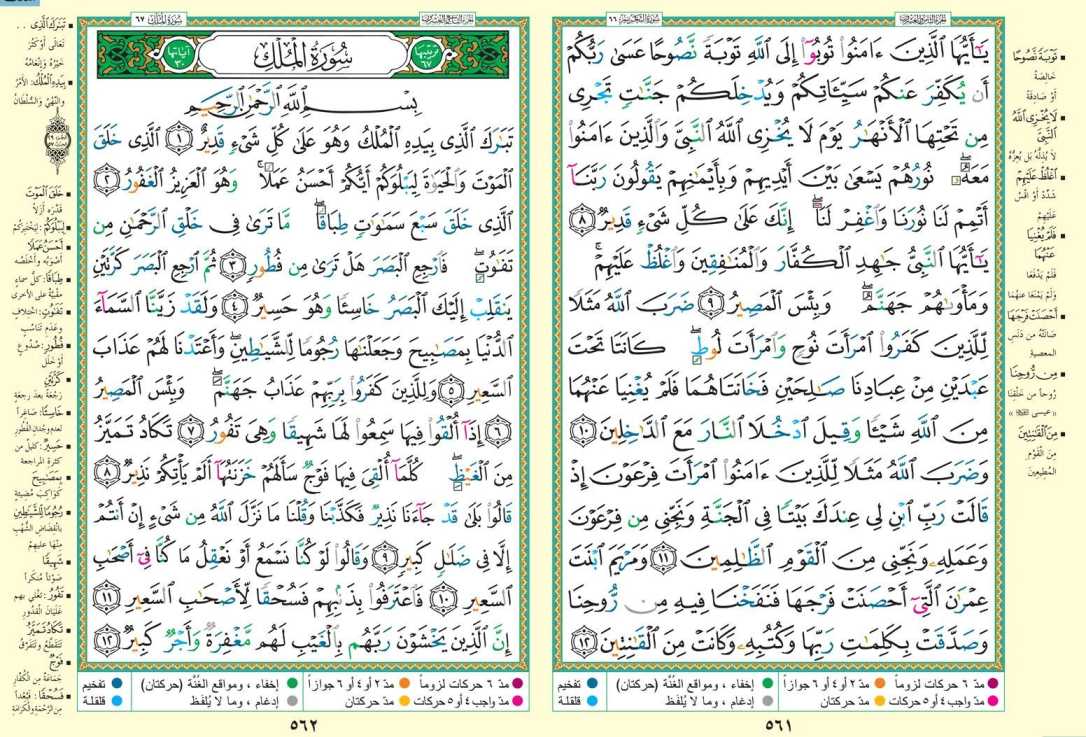 سُورَةُ التَّحْرِيمِ ٦٦
يَٰٓأَيُّهَا ٱلَّذِينَ ءَامَنُواْ تُوبُوٓاْ إِلَى ٱللَّهِ تَوْبَةً نَّصُوحًا عَسَىٰ رَبُّكُمْ
أَن يُكَفِّرَ عَنكُمْ سَيِّـَٔاتِكُمْ وَيُدْخِلَكُمْ جَنَّٰتٍ تَجْرِى
مِن تَحْتِهَا ٱلْأَنْهَٰرُ يَوْمَ لَا يُخْزِى ٱللَّهُ ٱلنَّبِىَّ وَٱلَّذِينَ ءَامَنُواْ
مَعَهُۥ نُورُهُمْ يَسْعَىٰ بَيْنَ أَيْدِيهِمْ وَبِأَيْمَٰنِهِمْ يَقُولُونَ رَبَّنَآ
أَتْمِمْ لَنَا نُورَنَا وَٱغْفِرْ لَنَآ إِنَّكَ عَلَىٰ كُلِّ شَىْءٍ قَدِيرٌ ٨
يَٰٓأَيُّهَا ٱلنَّبِىُّ جَٰهِدِ ٱلْكُفَّارَ وَٱلْمُنَٰفِقِينَ وَٱغْلُظْ عَلَيْهِمْ ۚ
وَمَأْوَىٰهُمْ جَهَنَّمُ وَبِئْسَ ٱلْمَصِيرُ ٩ ضَرَبَ ٱللَّهُ مَثَلًا
لِّلَّذِينَ كَفَرُواْ ٱمْرَأَتَ نُوحٍ وَٱمْرَأَتَ لُوطٍ كَانَتَا تَحْتَ
عَبْدَيْنِ مِنْ عِبَادِنَا صَٰلِحَيْنِ فَخَانَتَاهُمَا فَلَمْ يُغْنِيَا عَنْهُمَا
مِنَ ٱللَّهِ شَيْـًٔا وَقِيلَ ٱدْخُلَا ٱلنَّارَ مَعَ ٱلدَّٰخِلِينَ ١٠
وَضَرَبَ ٱللَّهُ مَثَلًا لِّلَّذِينَ ءَامَنُواْ ٱمْرَأَتَ فِرْعَوْنَ إِذْ
قَالَتْ رَبِّ ٱبْنِ لِى عِندَكَ بَيْتًا فِى ٱلْجَنَّةِ وَنَجِّنِى مِن فِرْعَوْنَ
وَعَمَلِهِۦ وَنَجِّنِى مِنَ ٱلْقَوْمِ ٱلظَّٰلِمِينَ ١١ وَمَرْيَمَ ٱبْنَتَ
عِمْرَٰنَ ٱلَّتِىٓ أَحْصَنَتْ فَرْجَهَا فَنَفَخْنَا فِيهِ مِن رُّوحِنَا
وَصَدَّقَتْ بِكَلِمَٰتِ رَبِّهَا وَكُتُبِهِۦ وَكَانَتْ مِنَ ٱلْقَٰنِتِينَ ١٢
تَوْبَةً نَّصُوحًا
خالِصَةً
أو صَادِقَةً
لَا يُخْزِى ٱللَّهُ ٱلنَّبِىَّ
لا يُذِلُّهُ بل يُعِزُّهُ
ٱغْلُظْ عَلَيْهِمْ
شَدِّدْ أو اقْسُ
عَلَيْهِمْ
فَلَمْ يُغْنِيَا
عَنْهُمَا
فَلَمْ يَدْفَعَا
وَلَمْ يَمْنَعَا عنهما
أَحْصَنَتْ فَرْجَهَا
صَانَتْهُ من دَنَسِ
المعصية
مِن رُّوحِنَا
رُوحاً من خَلْقِنَا
« عيسى ﷺ »
مِنَ ٱلْقَٰنِتِينَ
مِنَ القَوْمِ
المُطيعين
مدّ ٦ حركات لزوماً مدّ ٢ أو ٤ أو ٦ جوازاً إخفاء ، ومواقع الغُنَّة (حركتان) تفخيم
مدّ واجب ٤ أو ٥ حركات مدّ حركتان إدغام ، وما لا يُلفَظ قلقلة
٥٦١
سُورَةُ المُلْكِ ٦٧
تَرتيبها ٦٧ سُورَةُ المُلْكِ آياتها ٣٠
بِسْمِ ٱللَّهِ ٱلرَّحْمَٰنِ ٱلرَّحِيمِ
تَبَٰرَكَ ٱلَّذِى بِيَدِهِ ٱلْمُلْكُ وَهُوَ عَلَىٰ كُلِّ شَىْءٍ قَدِيرٌ ١ ٱلَّذِى خَلَقَ
ٱلْمَوْتَ وَٱلْحَيَوٰةَ لِيَبْلُوَكُمْ أَيُّكُمْ أَحْسَنُ عَمَلًا ۚ وَهُوَ ٱلْعَزِيزُ ٱلْغَفُورُ ٢
ٱلَّذِى خَلَقَ سَبْعَ سَمَٰوَٰتٍ طِبَاقًا مَّا تَرَىٰ فِى خَلْقِ ٱلرَّحْمَٰنِ مِن
تَفَٰوُتٍ فَٱرْجِعِ ٱلْبَصَرَ هَلْ تَرَىٰ مِن فُطُورٍ ٣ ثُمَّ ٱرْجِعِ ٱلْبَصَرَ كَرَّتَيْنِ
يَنقَلِبْ إِلَيْكَ ٱلْبَصَرُ خَاسِئًا وَهُوَ حَسِيرٌ ٤ وَلَقَدْ زَيَّنَّا ٱلسَّمَآءَ
ٱلدُّنْيَا بِمَصَٰبِيحَ وَجَعَلْنَٰهَا رُجُومًا لِّلشَّيَٰطِينِ وَأَعْتَدْنَا لَهُمْ عَذَابَ
ٱلسَّعِيرِ ٥ وَلِلَّذِينَ كَفَرُواْ بِرَبِّهِمْ عَذَابُ جَهَنَّمَ وَبِئْسَ ٱلْمَصِيرُ
٦ إِذَآ أُلْقُواْ فِيهَا سَمِعُواْ لَهَا شَهِيقًا وَهِىَ تَفُورُ ٧ تَكَادُ تَمَيَّزُ
مِنَ ٱلْغَيْظِ كُلَّمَآ أُلْقِىَ فِيهَا فَوْجٌ سَأَلَهُمْ خَزَنَتُهَآ أَلَمْ يَأْتِكُمْ نَذِيرٌ ٨
قَالُواْ بَلَىٰ قَدْ جَآءَنَا نَذِيرٌ فَكَذَّبْنَا وَقُلْنَا مَا نَزَّلَ ٱللَّهُ مِن شَىْءٍ إِنْ أَنتُمْ
إِلَّا فِى ضَلَٰلٍ كَبِيرٍ ٩ وَقَالُواْ لَوْ كُنَّا نَسْمَعُ أَوْ نَعْقِلُ مَا كُنَّا فِىٓ أَصْحَٰبِ
ٱلسَّعِيرِ ١٠ فَٱعْتَرَفُواْ بِذَنۢبِهِمْ فَسُحْقًا لِّأَصْحَٰبِ ٱلسَّعِيرِ ١١
إِنَّ ٱلَّذِينَ يَخْشَوْنَ رَبَّهُم بِٱلْغَيْبِ لَهُم مَّغْفِرَةٌ وَأَجْرٌ كَبِيرٌ ١٢
تَبَٰرَكَ ٱلَّذِى . .
تَعَالَى أو كَثُرَ
خَيْرُهُ وَإِنْعَامُهُ
بِيَدِهِ ٱلْمُلْكُ: الأمْرُ
والنَّهْيُ والسُّلْطَانُ
خَلَقَ ٱلْمَوْتَ
قَدَّرَه أزَلاً
لِيَبْلُوَكُمْ: ليَخْتَبِرَكُمْ
أَحْسَنُ عَمَلًا
أصْوَبُه وأخْلَصُه
طِبَاقًا: كلّ سماءٍ
مقْبِيَّةٌ على الأخرى
تَفَٰوُتٍ: اختلافٍ
وعَدَمِ تَنَاسُبٍ
فُطُورٍ: صُدُوعٍ
أو خَلَلٍ
كَرَّتَيْنِ
رَجْعَةً بعدَ رجعةٍ
خَاسِئًا: صَاغِراً
لعدم وِجْدَانِ الفُطُورِ
حَسِيرٌ: كليلٌ من
كثرةِ المراجعة
بِمَصَٰبِيحَ
كَوَاكِبَ مُضيئةٍ
رُجُومًا لِّلشَّيَٰطِينِ
بانْقِضَاضِ الشُّهُبِ
مِنْها عليهم
شَهِيقًا
صَوْتاً مُنكَراً
تَفُورُ: تَغْلي بهم
غَلَيَانَ القُدُورِ
تَكَادُ تَمَيَّزُ
تَتَقَطَّعُ وتَتَفَرَّقُ
فَوْجٌ
جَمَاعَةٌ مِن الكُفَّارِ
فَسُحْقًا: فَبُعْداً
مِنَ الرَّحْمَةِ والكَرَامَةِ
مدّ ٦ حركات لزوماً مدّ ٢ أو ٤ أو ٦ جوازاً إخفاء ، ومواقع الغُنَّة (حركتان) تفخيم
مدّ واجب ٤ أو ٥ حركات مدّ حركتان إدغام ، وما لا يُلفَظ قلقلة
٥٦٢